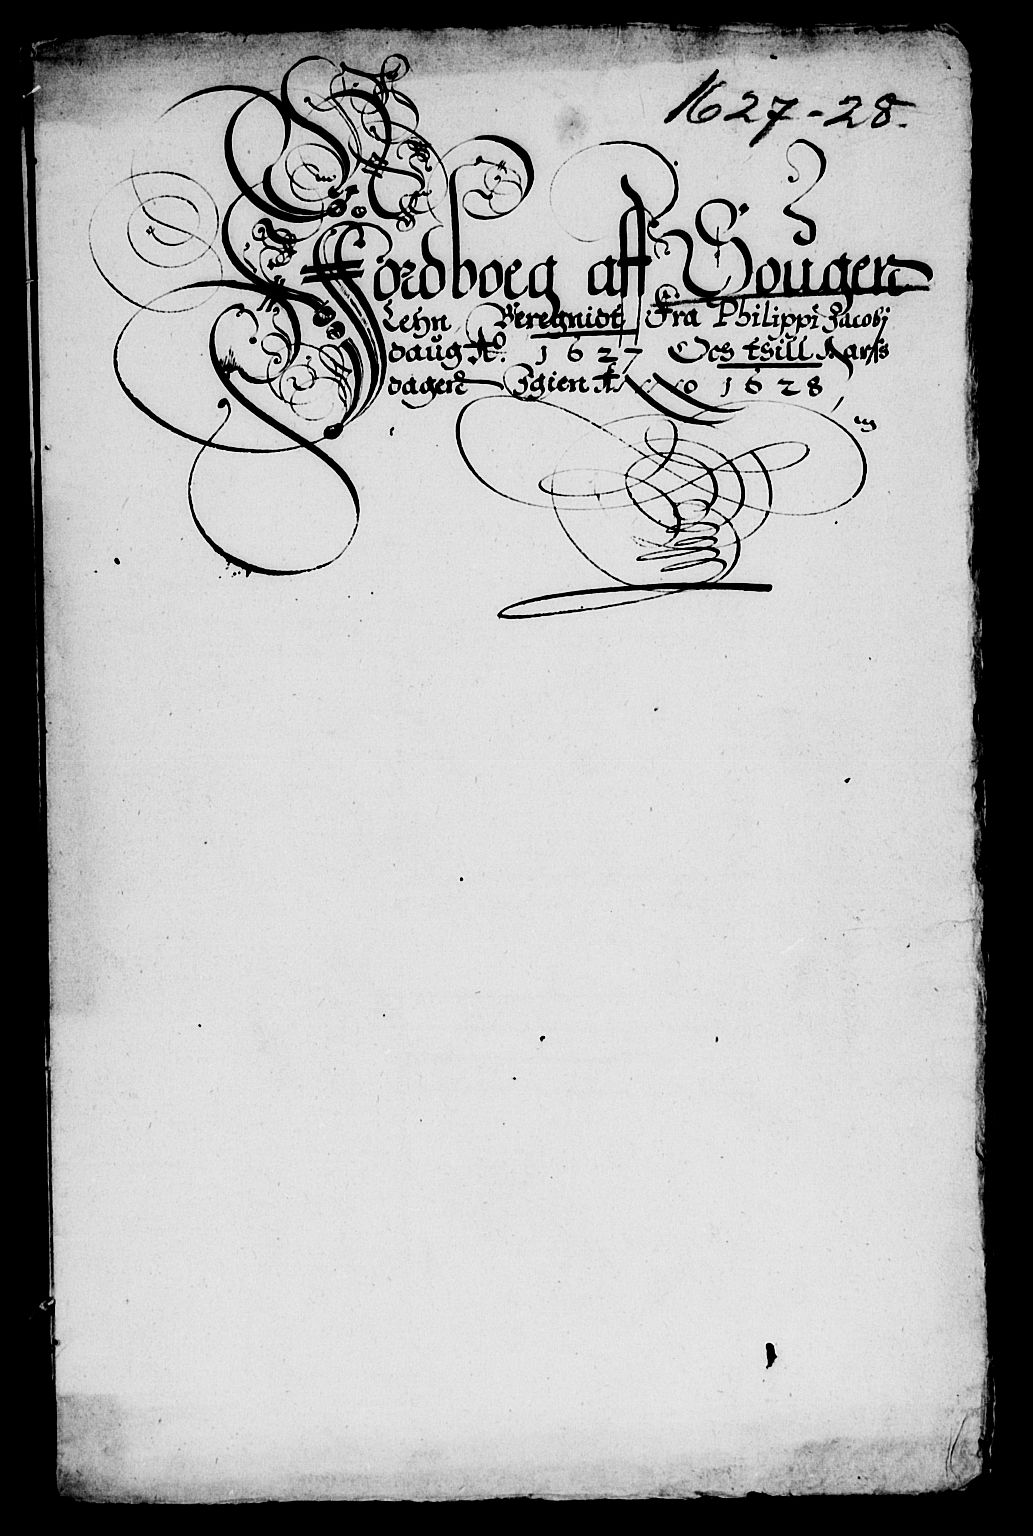 1627-28.
3
Jordboeg aff Bougen
Lehn, Beregnidt Fra Philippi Jacobj
daug Aō. 1627 Och thill Aarss
dagen Igien Ao 1628